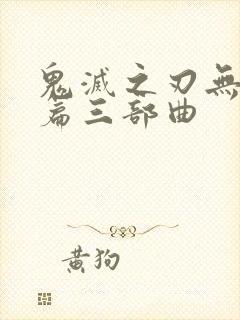 鬼滅之刃無
篇三部曲
黃狗